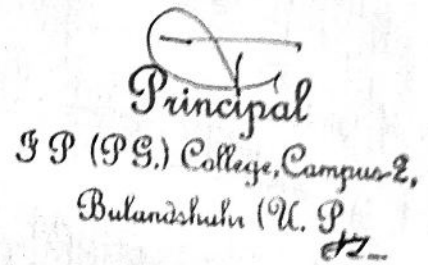 Principal
I P (P.G.) College, Campus-2,
Bulandshahr (U. P.